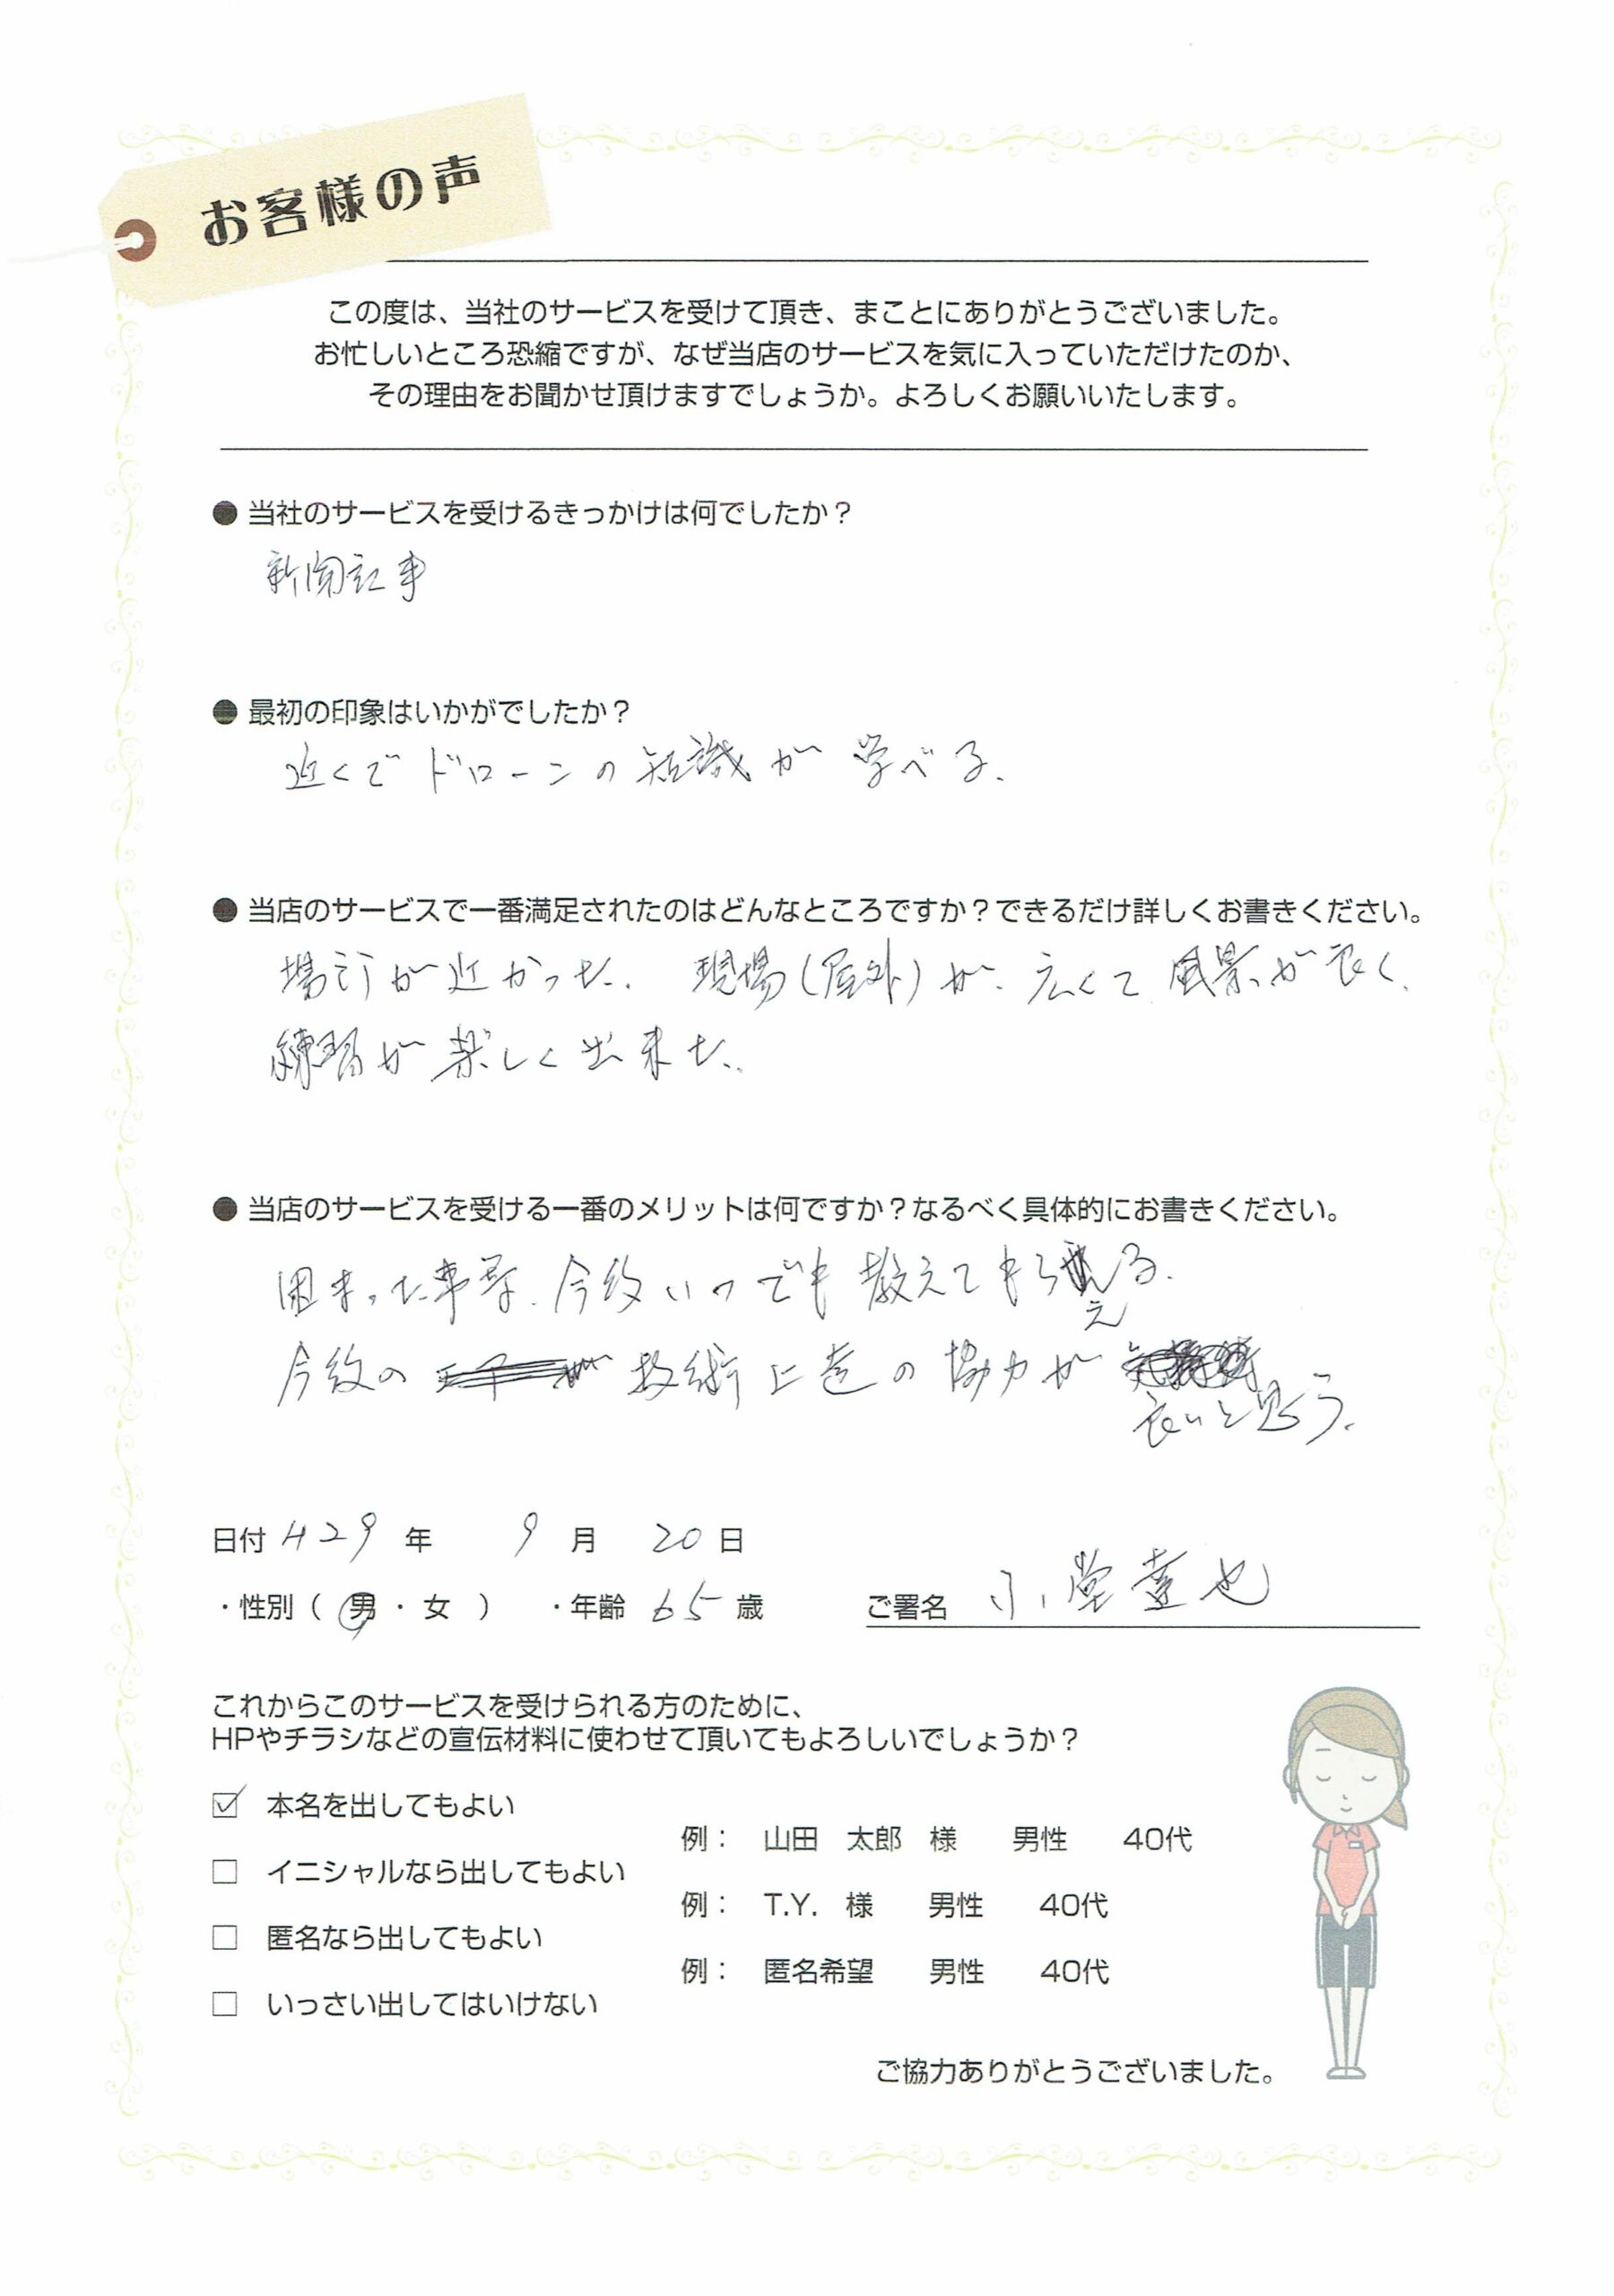 お客様の声
この度は、当社のサービスを受けて頂き、まことにありがとうございました。
お忙しいところ恐縮ですが、なぜ当店のサービスを気に入っていただけたのか、
その理由をお聞かせ頂けますでしょうか。よろしくお願いいたします。
● 当社のサービスを受けるきっかけは何でしたか？
新聞記事
● 最初の印象はいかがでしたか？
近くでドローンの知識が学べる。
● 当店のサービスで一番満足されたのはどんなところですか？できるだけ詳しくお書きください。
場所が近かった。現場（屋外）が、広くて風景が良く、
練習が楽しく出来た。
● 当店のサービスを受ける一番のメリットは何ですか？なるべく具体的にお書きください。
困まった事等、今後いつでも教えてもらえる。
今後の 技術上達の協力が
良いと思う。
日付 H29 年 9 月 20 日
・性別（ 男 ・ 女 ） ・年齢 65 歳 ご署名 小堂達也
これからこのサービスを受けられる方のために、
HPやチラシなどの宣伝材料に使わせて頂いてもよろしいでしょうか？
☑ 本名を出してもよい
例： 山田 太郎 様 男性 40代
□ イニシャルなら出してもよい
例： T.Y. 様 男性 40代
□ 匿名なら出してもよい
例： 匿名希望 男性 40代
□ いっさい出してはいけない
ご協力ありがとうございました。